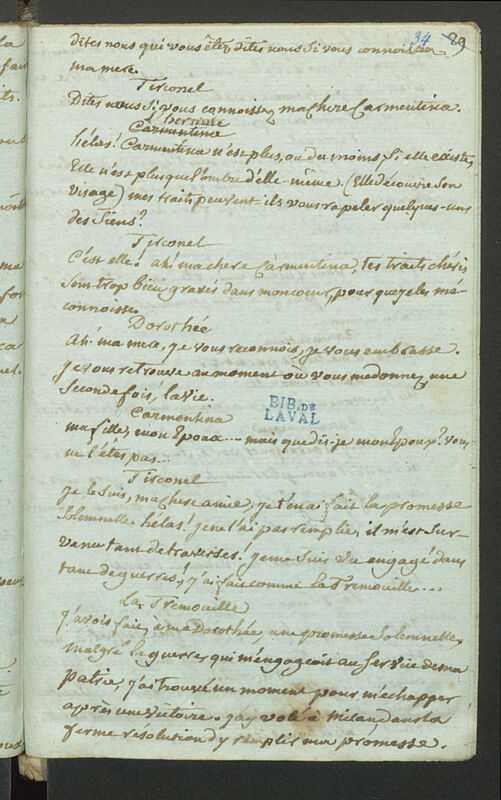 34 29
dites nous qui vous êtes, dites nous si vous connoissez
ma mere.
Tirconel
Dites nous si vous connoissez ma chere Carmentina.
l'hermite
Carmentina
hélas! Carmentina n'est plus, ou du moins si elle existe,
Elle n'est plus que l'ombre d'elle-même (Elle découvre son
visage) mes traits peuvent ils vous rapeler quelques-uns
des siens?
Tirconel
C'est elle! ah! ma chere Carmentina, tes traits chéris
sont trop bien gravés dans mon coeur, pour que je les mé-
connoisse.
Dorothée
Ah! ma mere, je vous reconnois, je vous embrasse.
je vous retrouve au moment où vous me donnez une
seconde fois, la vie.
BIB. DE
LAVAL
Carmentina
ma fille, mon Epoux... mais que dis-je mon Epoux? vous
ne l'êtes pas...
Tirconel
je le suis, ma chere amie, je t'en ai fait la promesse
solemnelle hélas! je ne l'ai pas remplie, il m'est sur-
venu tant de traverses! je me suis vu engagé dans
tant de guerres! j'ai fait comme la Tremouille...
La Tremouille
j'avois fait, à ma Dorothée, une promesse solemnelle,
malgré la guerre qui m'engageoit au service de ma
patrie, j'ai trouvé un moment pour m'échapper
après une victoire. j'ay volé à milan, dans la
ferme resolution d'y remplir ma promesse.